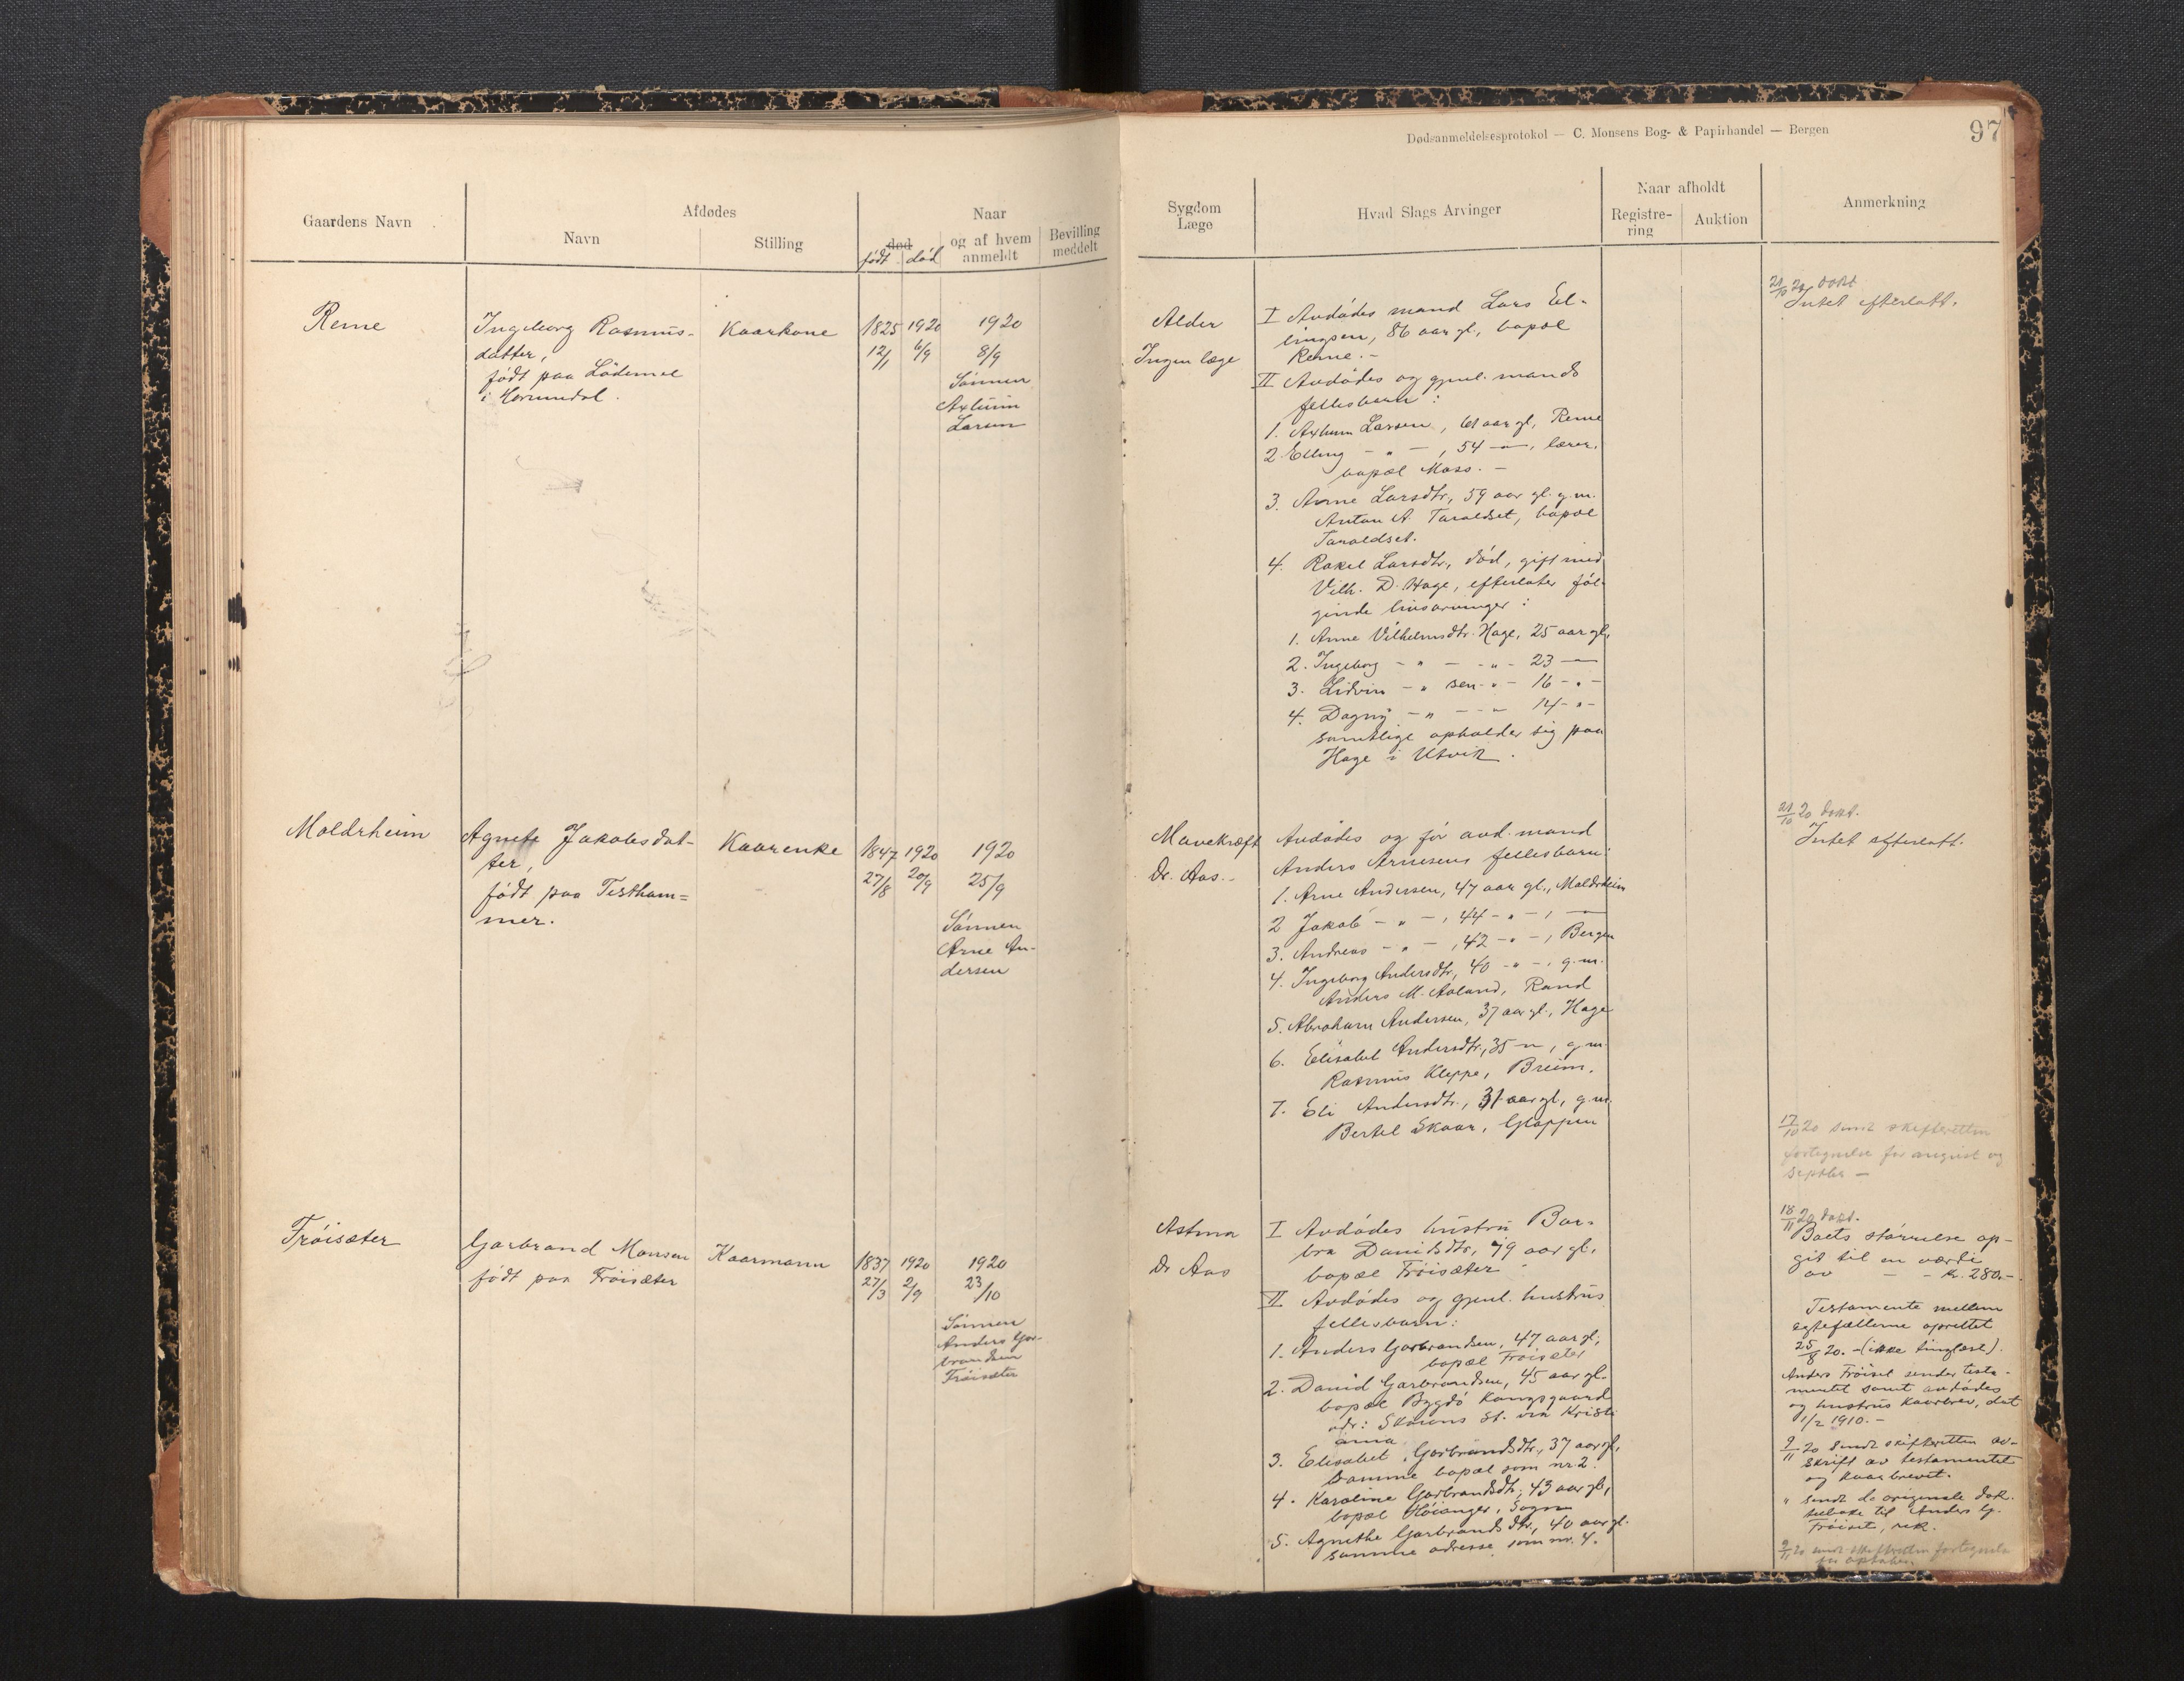 Dødsanmeldelsesprotokol — C. Monsens Bog- & Papirhandel — Bergen
97
Gaardens Navn
Afdødes
Navn
Stilling
død
født død
Naar
og af hvem
anmeldt
Bevilling
meddelt
Sygdom
Læge
Hvad Slags Arvinger
Naar afholdt
Registre-
ring
Auktion
Anmerkning
Reme
Ingeborg Rasmus-
datter,
født paa Lødemel
i Hornindal.
Kaarkone
1825 1920
12/1 6/9
1920
8/9
Sønnen
Larsen
Alder
Ingen læge
I Avdødes mand Lars El-
lingsen, 86 aar gl., bopæl
Reme. -
II Avdødes og gjenl. mands
fellesbarn :
1. Larsen, 61 aar gl, Reme
2. Elling - " - , 54 -"-, lærer,
bopæl Moss. -
3. Anne Larsdtr, 59 aar gl. g.m.
Anton A. Taraldset, bopæl
Taraldset.
4. Rakel Larsdtr, død, gift med
Vilh. D. Hage, efterlater føl-
gende livsarvinger :
1. Anne Vilhelmsdtr. Hage, 25 aar gl,
2. Ingeborg - " - - " - 23 -"-
3. Lidvin - " sen - " - 16 - " -
4. Dagny - " - - " - 14 - " -
samtlige opholder sig paa
Hage i Utvik.
21/10 20 dokt
Intet efterlatt.
Moldrheim
Agnete Jakobsdat-
ter,
født paa Tistham=
mer.
Kaarenke
1847 1920
27/8 20/9
1920
25/9
Sønnen
Arne An-
dersen
Mavekræft
Dr. Aas. -
Avdødes og før avd. mand
Anders Arnesens fellesbarn:
1. Arne Andersen, 47 aar gl., Moldrheim
2 Jakob - " - , 44 - " - , -"-
3. Andreas - " - , 42 - " - , Bergen
4. Ingeborg Andersdtr, 40 - " - , g.m.
Anders M. Aaland, Rand
5. Abraham Andersen, 37 aar gl., Hage
6. Elisabet Andersdtr., 35 -"-, g.m.
Rasmus Kleppe, Breim.
7. Eli Andersdtr., 31 aar gl, g.m.
Bertel Skaar, Gloppen
21/10 20 dokt.
Intet efterlatt.
17/10 20 sendt skifteretten
fortegnelse for august og
septbr -
Frøisæter
Garbrand Monsen
født paa Frøisæter
Kaarmann
1837 1920
27/3 2/9
1920
23/10
Sønnen
Anders Gar-
brandsen
Frøisæter
Astma
Dr Aas
I Avdødes hustru Bar-
bra Danielsdtr, 79 aar gl,
bopæl Frøisæter
II Avdødes og gjenl. hustrus
fellesbarn:
1. Anders Garbrandsen, 47 aar gl,
bopæl Frøisæter
2. Daniel Garbrandsen, 45 aar gl.
bopæl Bygdø Kongsgaard
adr: Skøiens st. via Kristi
ania
3. Elisabet Garbrandsdtr., 37 aar gl,
samme bopæl som nr 2.
4. Karoline Garbrandsdtr, 43 aar gl,
bopæl Høianger, Sogn
5. Agnethe Garbrandsdtr, 40 aar gl.
samme adresse som nr. 4.
18/11 20 dokt.
Boets størrelse op-
git til en værdi
av - - kr. 280.-
Testamente mellem
egtefællerne oprettet
25/8 20. - (ikke tinglæst).
Anders Frøiset sender testa-
mentet samt avdødes
og hustrus kaarbrev, dat
1/2 1910. -
9/11 20 sendt skifteretten av-
skrift av testamentet
og kaarbrevet.
" sendt de originale dok.
tilbake til Anders G.
Frøiset, rek.
9/11 20 sendt skifteretten fortegnelse
for oktober